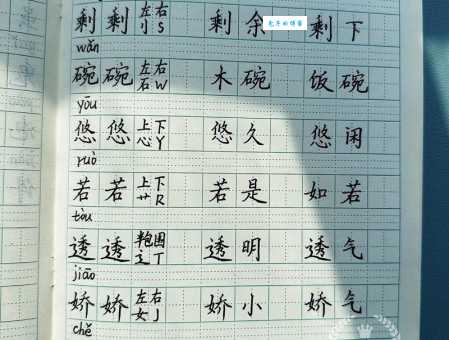 剩 剩 左右 刂S 剩余 剩下
wǎn
碗 碗 左右 石W 木碗 饭碗
yōu
悠 悠 上下 心Y 悠久 悠闲
ruò
若 若 上下 艹R 若是 如若
tòu
透 透 半包围 辶T 透明 透气
jiāo
娇 娇 左右 女J 娇小 娇气
chě